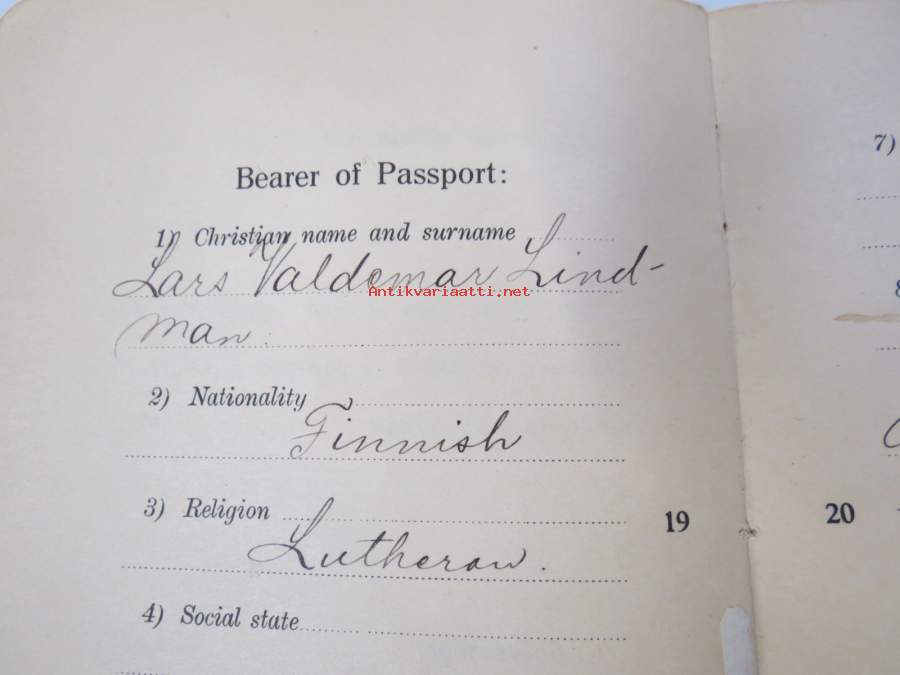 Bearer of Passport:
1) Christian name and surname
Lars Valdemar Lind-
man.
Antikvariaatti.net
2) Nationality
Finnish
3) Religion
Lutheran.
4) Social state
19
7)
8
20